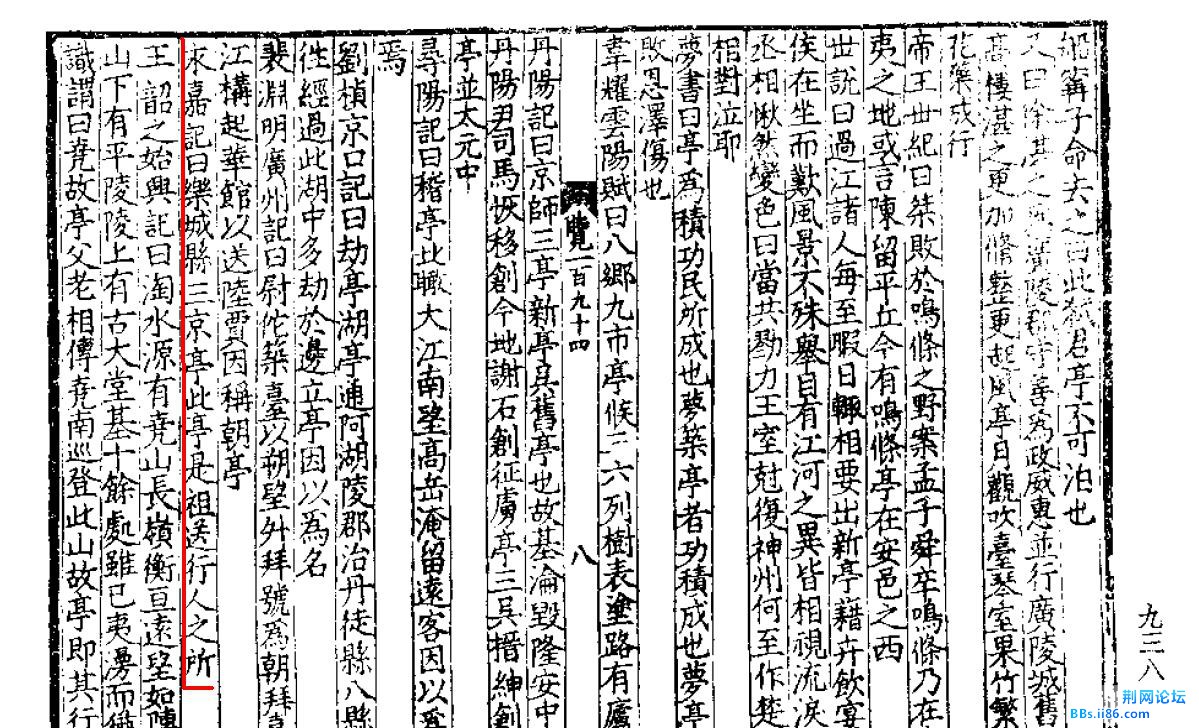 船篙子命去之曰此弒君亭不可泊也
又曰徐湛之為廣陵郡守善為政威惠並行廣陵城舊
高樓湛之更加脩整更起風亭月觀吹臺琴室果竹繁
花藥成行
帝王世紀曰桀敗於鳴條之野案孟子舜卒鳴條乃在
夷之地或言陳留平丘今有鳴條亭在安邑之西
世說曰過江諸人每至暇日輙相要出新亭藉卉飲宴
侯在坐而歎風景不殊舉目有江河之異皆相視流淚
丞相愀然變色曰當共勠力王室尅復神州何至作楚
相對泣耶
夢書曰亭為積功民所成也夢築亭者功積成也夢亭
敗恩澤傷也
韋耀雲陽賦曰八鄉九市亭候三六列樹表塗路有廬
覽一百九十四 八
丹陽記曰京師三亭新亭吳舊亭也故基淪毀隆安中
丹陽尹司馬恢移創今地謝石創征虜亭三吳搢紳創
亭並太元中
尋陽記曰稽亭北瞰大江南望高岳淹留遠客因以爲
焉
劉楨京口記曰劫亭湖亭通阿湖陵郡治丹徒縣八縣
徃經過此湖中多劫於邊立亭因以為名
裴淵明廣州記曰尉佗築臺以朔望外拜號為朝拜臺
江構起華館以送陸賈因稱朝亭
永嘉記曰樂城縣三京亭此亭是祖送行人之所
王韶之始興記曰淘水源有堯山長嶺衡亘遠望如陳
山下有平陵陵上有古大堂基十餘處雖已夷漫而猶
識謂曰堯故亭父老相傳堯南巡登此山故亭即其行
九三八
荆网论坛
BBs.ii86.com